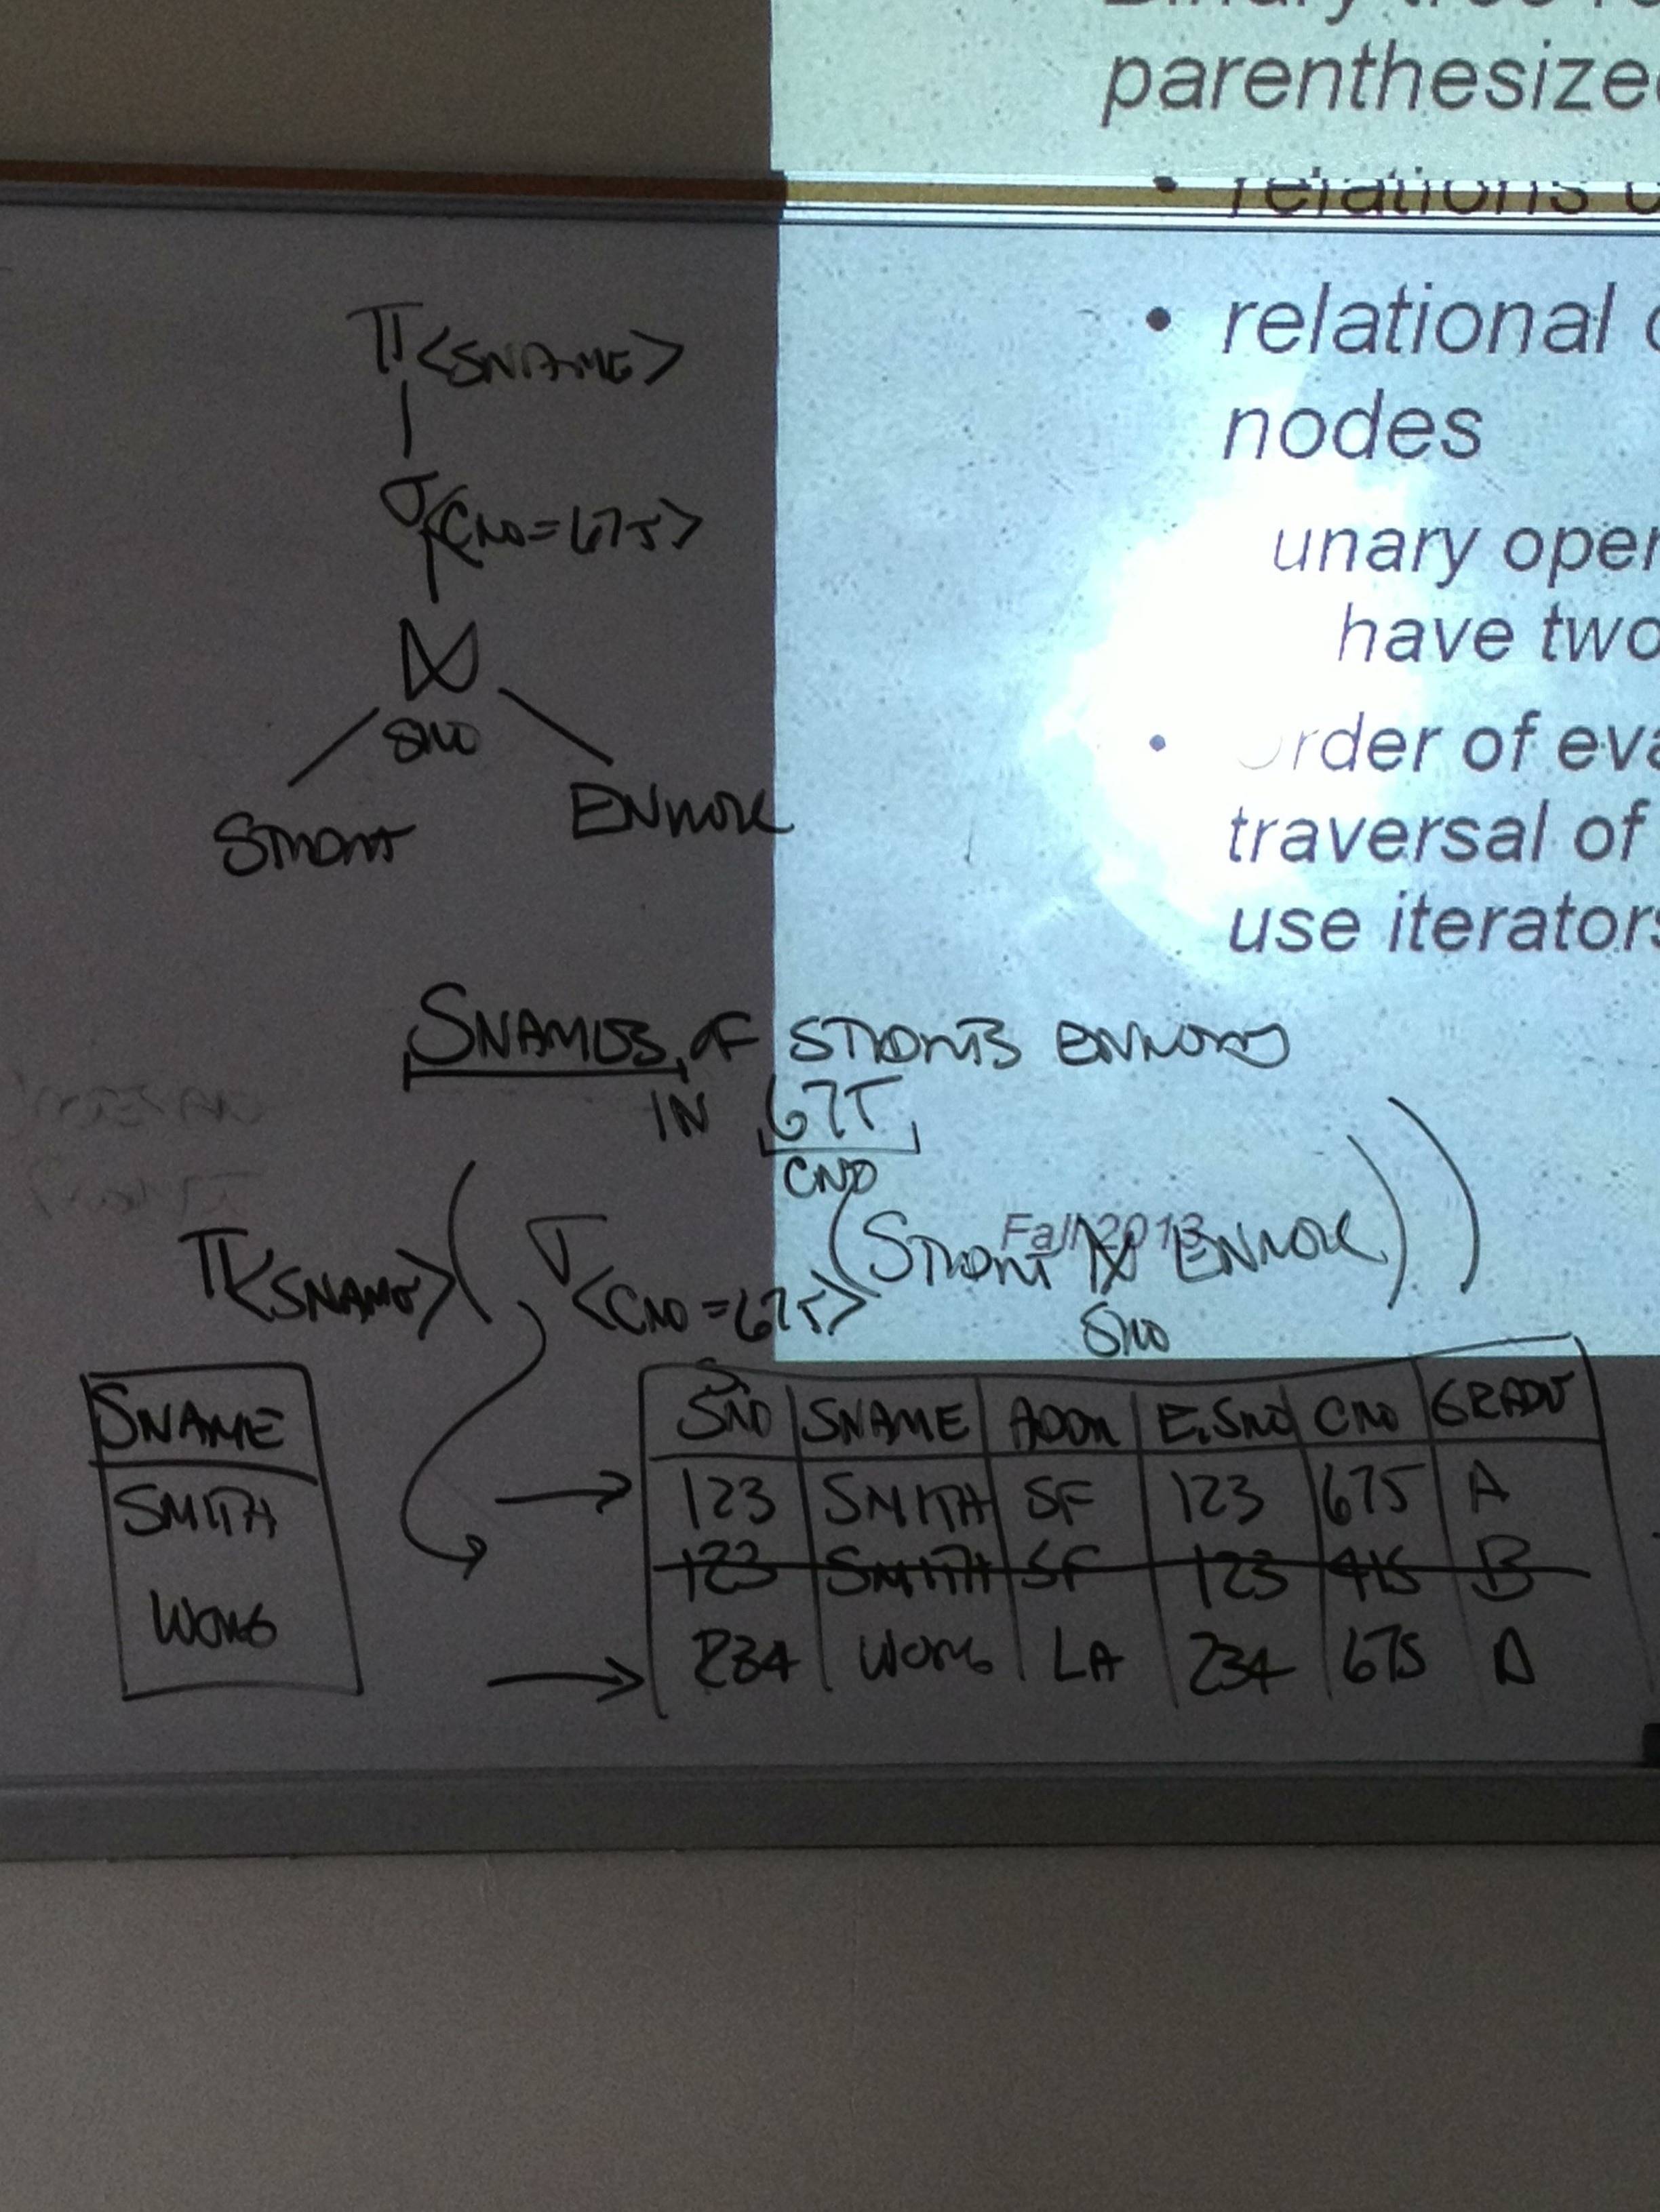 parenthesized
• relations
• relational
nodes
unary oper
have two
• Order of eva
traversal of
use iterators
π<SNAME>
σ<CNO=675>
⋈
SNO
STUDENT ENROLL
SNAMES OF STUDENTS ENROLLED
IN 675
CNO
Fall 2013
π<SNAME>(σ<CNO=675>(STUDENT ⋈ ENROLL))
SNO
SNAME
SMITH
WONG
S.
SNO SNAME ADDR E.SNO CNO GRADE
123 SMITH SF 123 675 A
123 SMITH SF 123 415 B
234 WONG LA 234 675 A